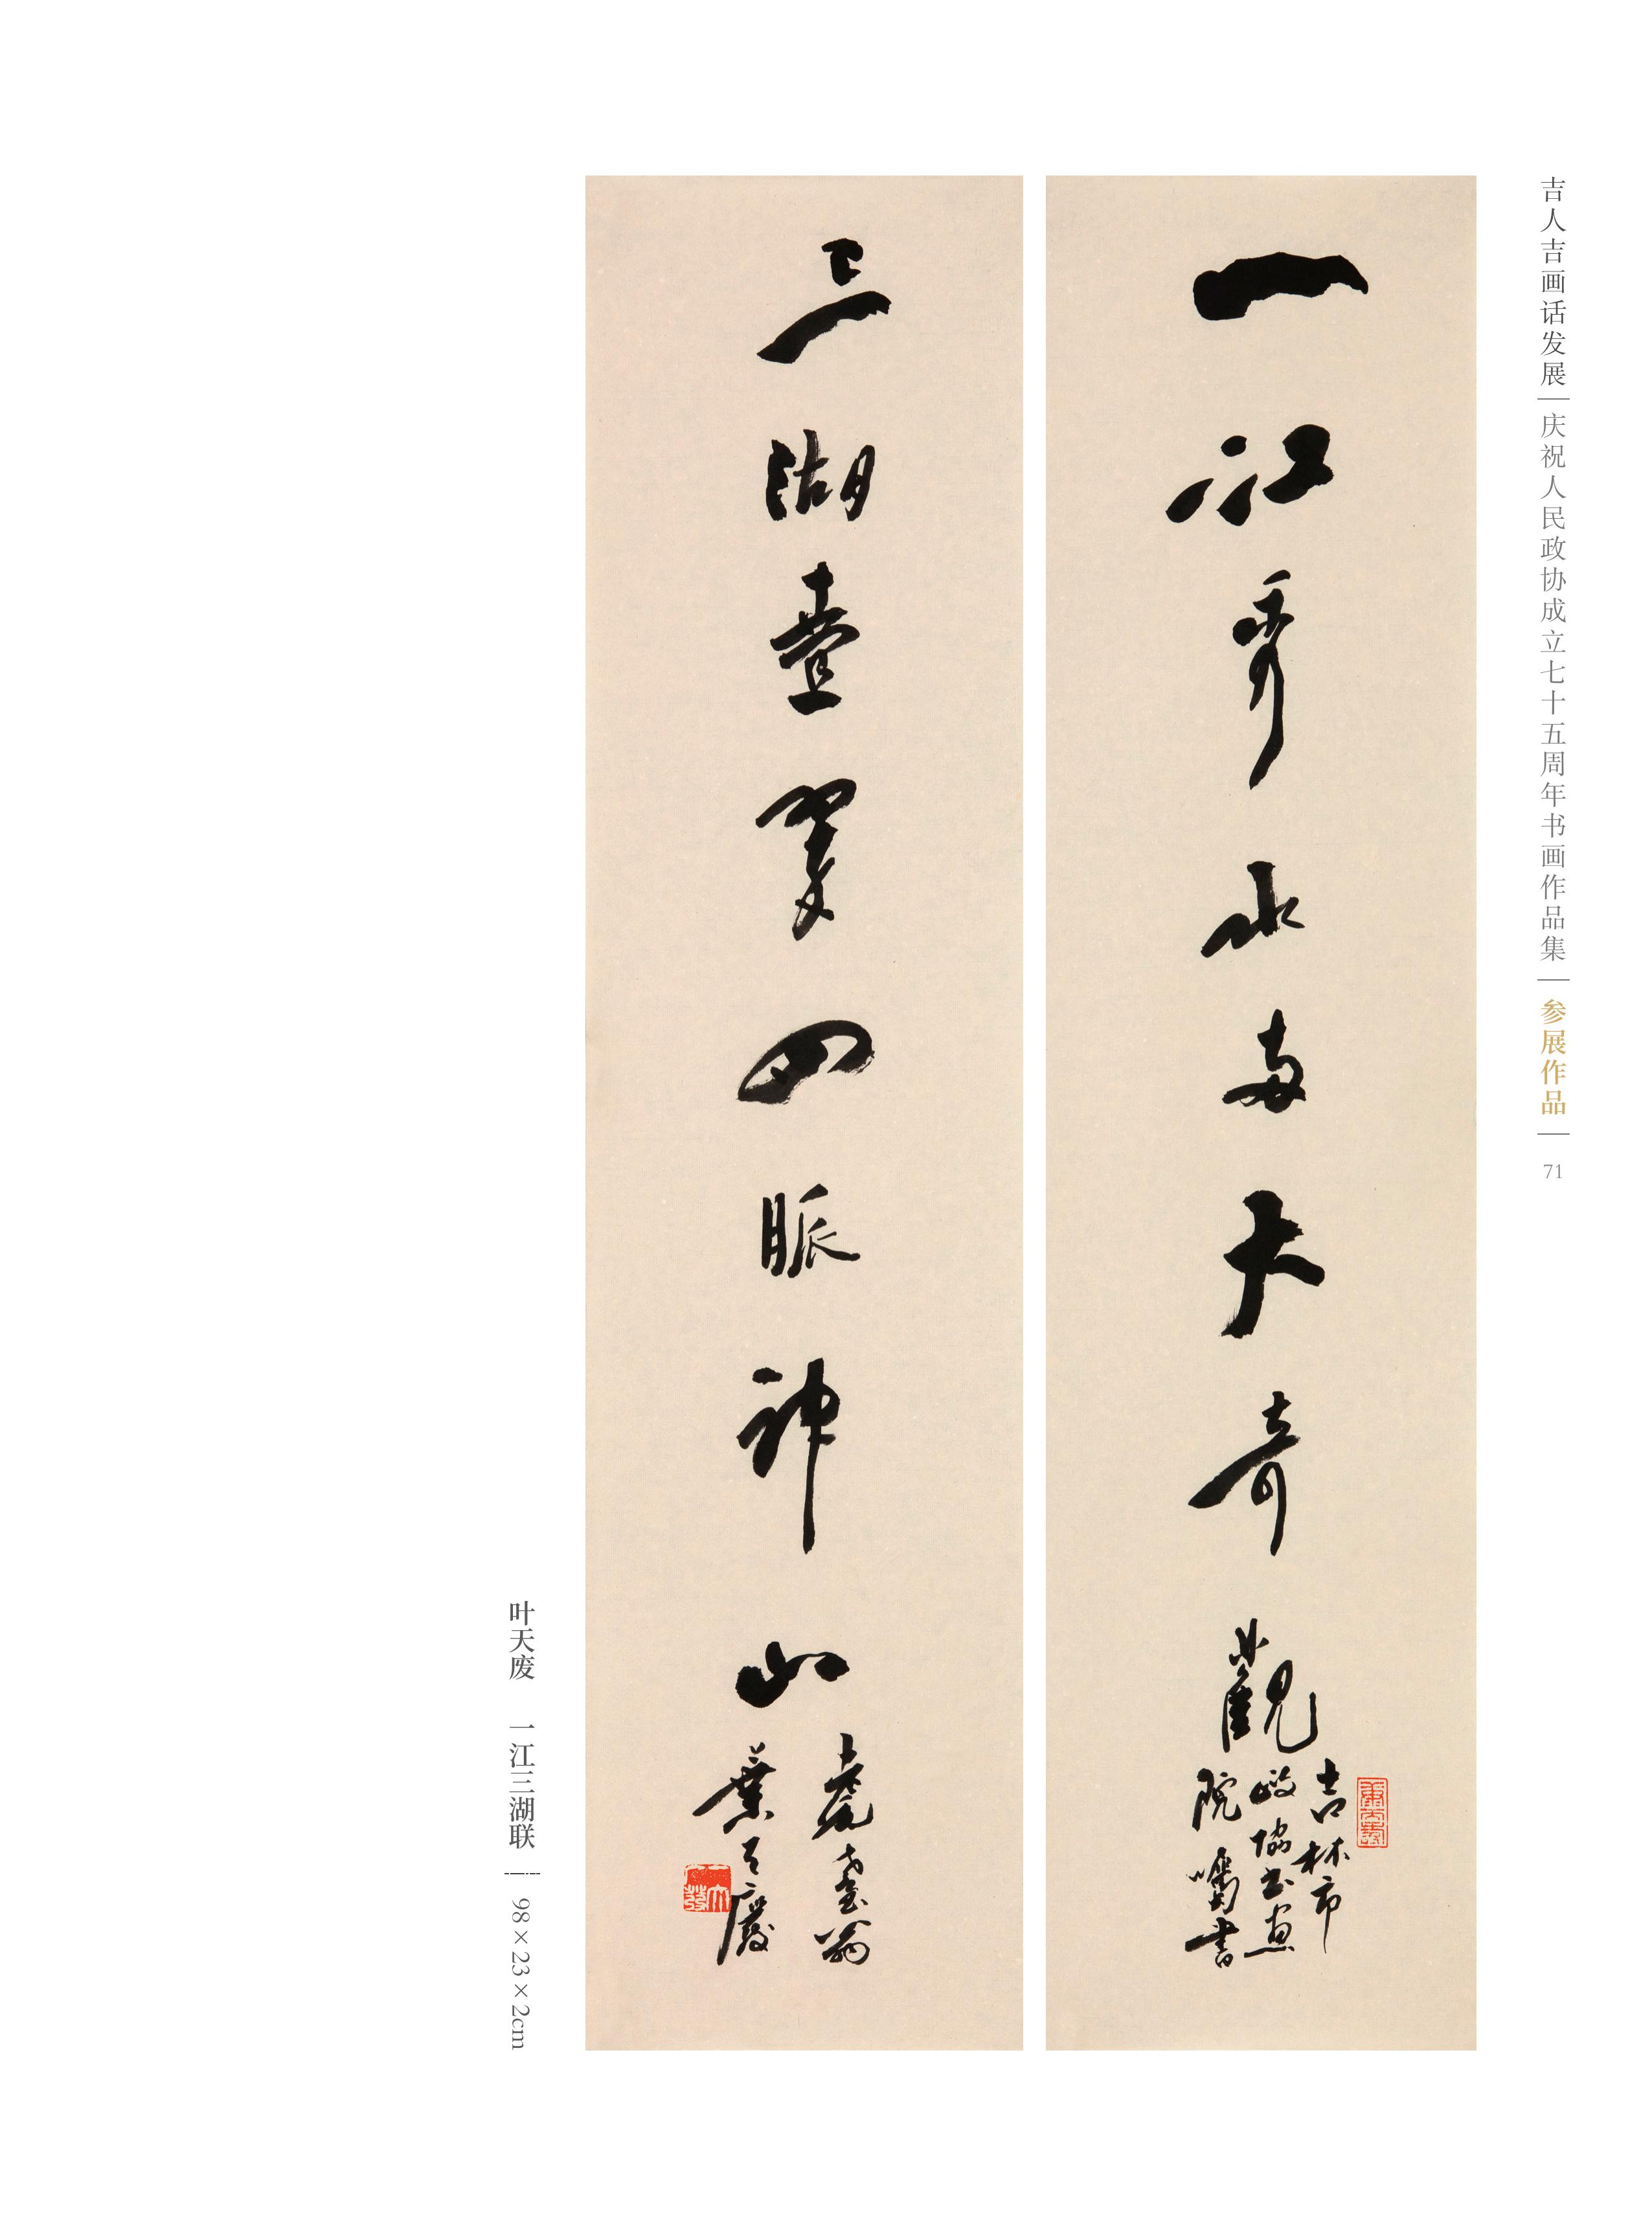 吉人吉画话发展
庆祝人民政协成立七十五周年书画作品集
参展作品
71
一江秀水两大奇觀
吉林市
政協书畫
院囑書
三湖叠翠四脈神山
耄耋翁
葉天廢
叶天废 一江三湖联
98×23×2cm